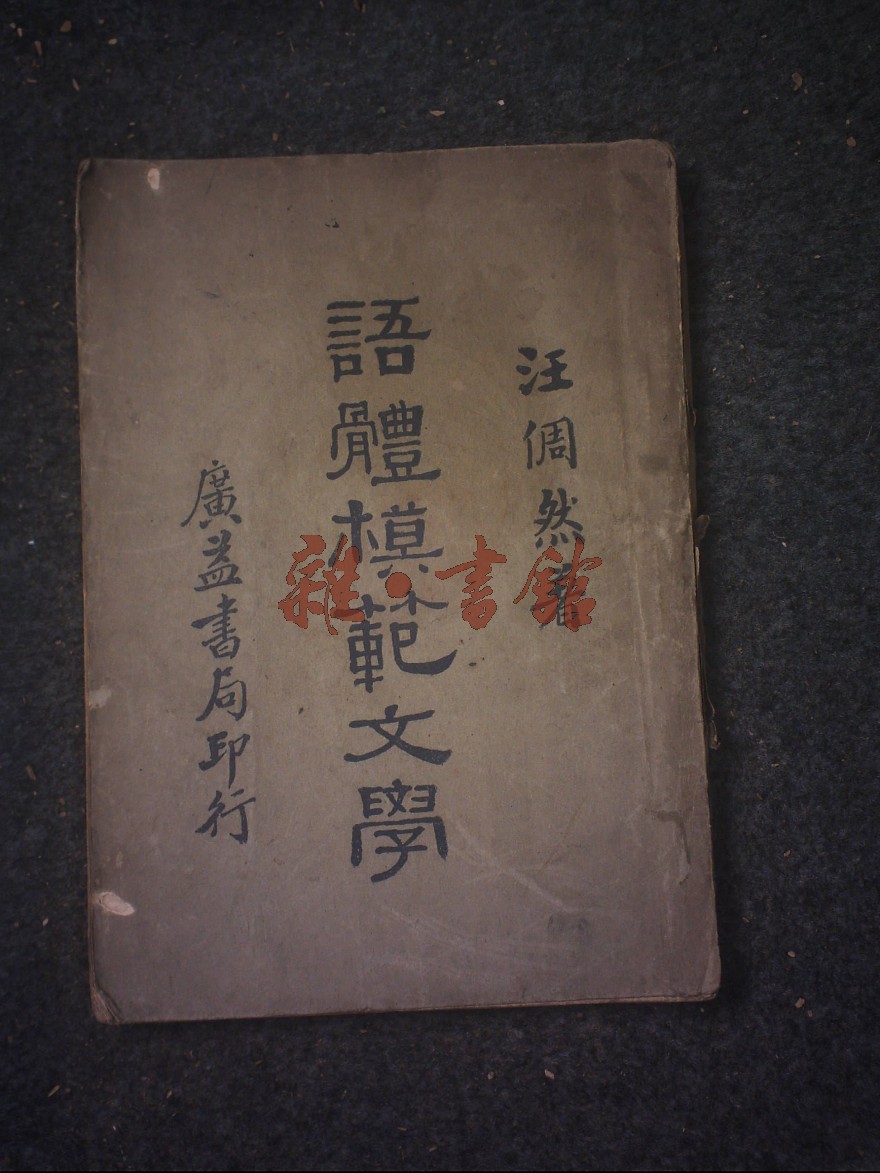 汪倜然著
語體模範文學
廣益書局印行
雜·書館